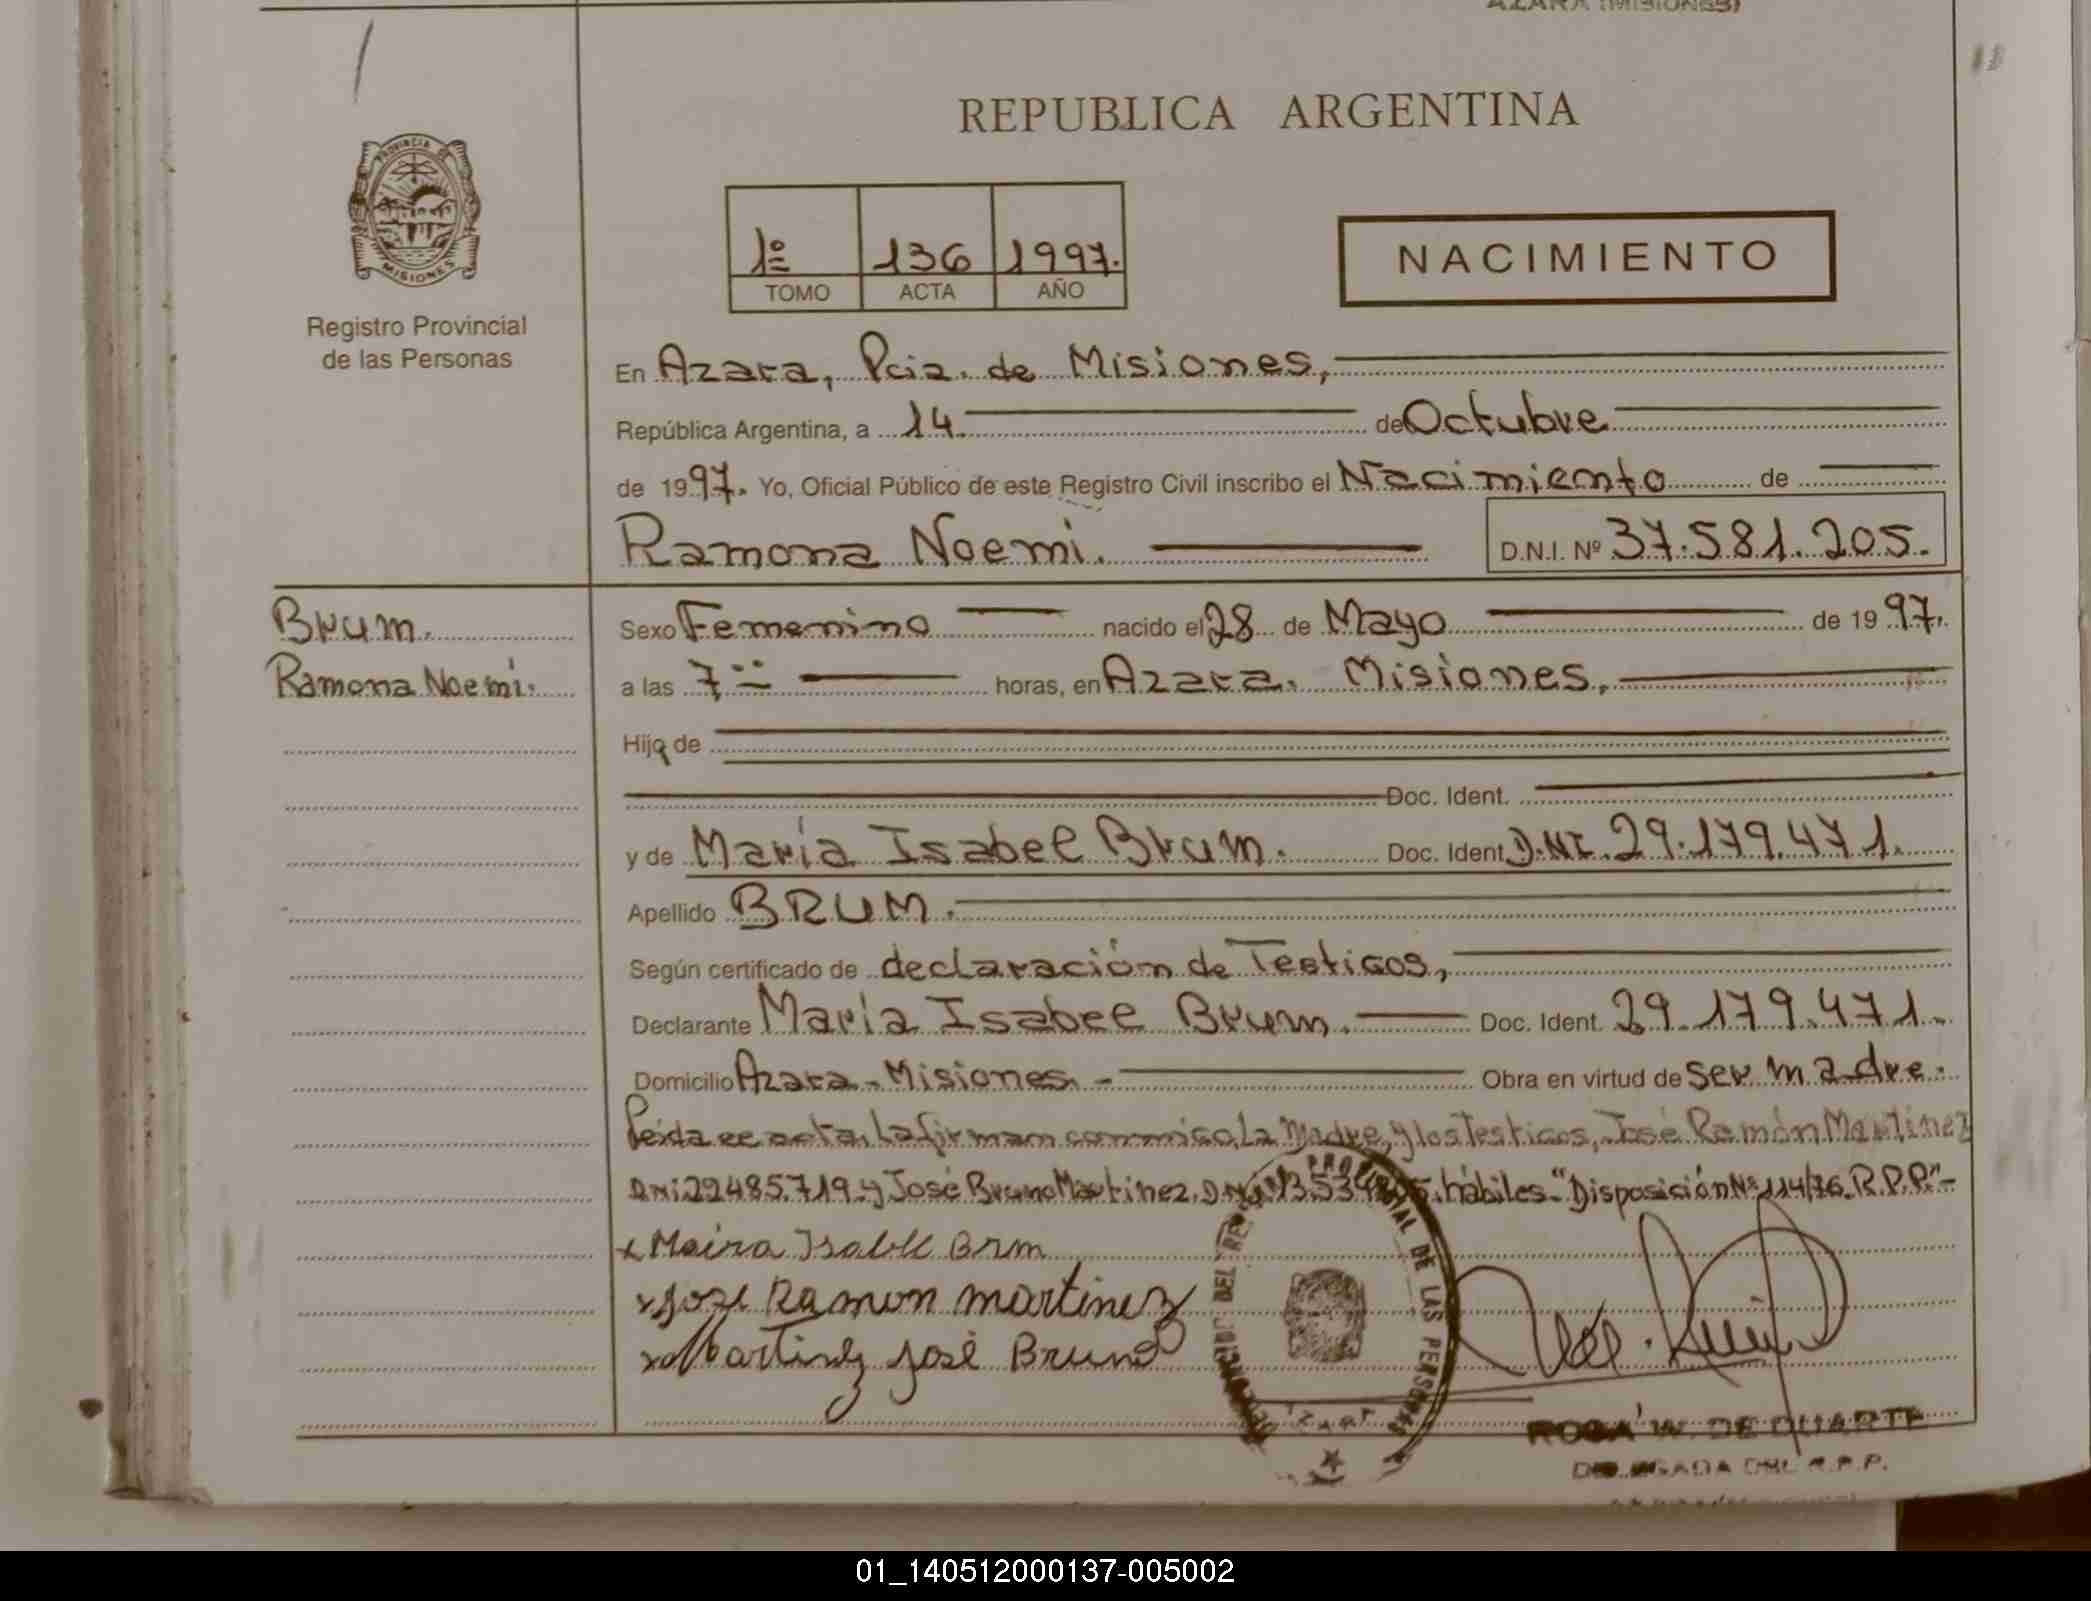 AZARA (MISIONES)
REPUBLICA ARGENTINA
PROVINCIA DE
MISIONES
Registro Provincial
de las Personas
1º 136 1997.
TOMO ACTA AÑO
NACIMIENTO
En Azara, Pcia. de Misiones,
República Argentina, a 14. de Octubre
de 1997. Yo, Oficial Público de este Registro Civil inscribo el Nacimiento de
Ramona Noemi. D.N.I. Nº 37.581.205.
Brum.
Ramona Noemi.
Sexo Femenino nacido el 28 de Mayo de 1997.
a las 7 horas, en Azara. Misiones,
Hija de
Doc. Ident.
y de María Isabel Brum. Doc. Ident. D.N.I. 29.179.471.
Apellido BRUM.
Según certificado de declaración de Testigos,
Declarante María Isabel Brum. Doc. Ident. 29.179.471.
Domicilio Azara - Misiones - Obra en virtud de ser madre.
Leída el acta, la firman conmigo, La Madre, y los Testigos, José Ramón Martinez
DNI 22485.719. y José Bruno Martinez, hábiles. "Disposición Nº 114/76. R.P.P." -
x Maira Isabll Brm
x Jose Ramon martinez
x Martinez José Bruno
DELEGACION DEL REG. PROVINCIAL DE LAS PERSONAS
AZARA
ROSA W. DE DUARTE
DELEGADA DEL R.P.P.
01_140512000137-005002